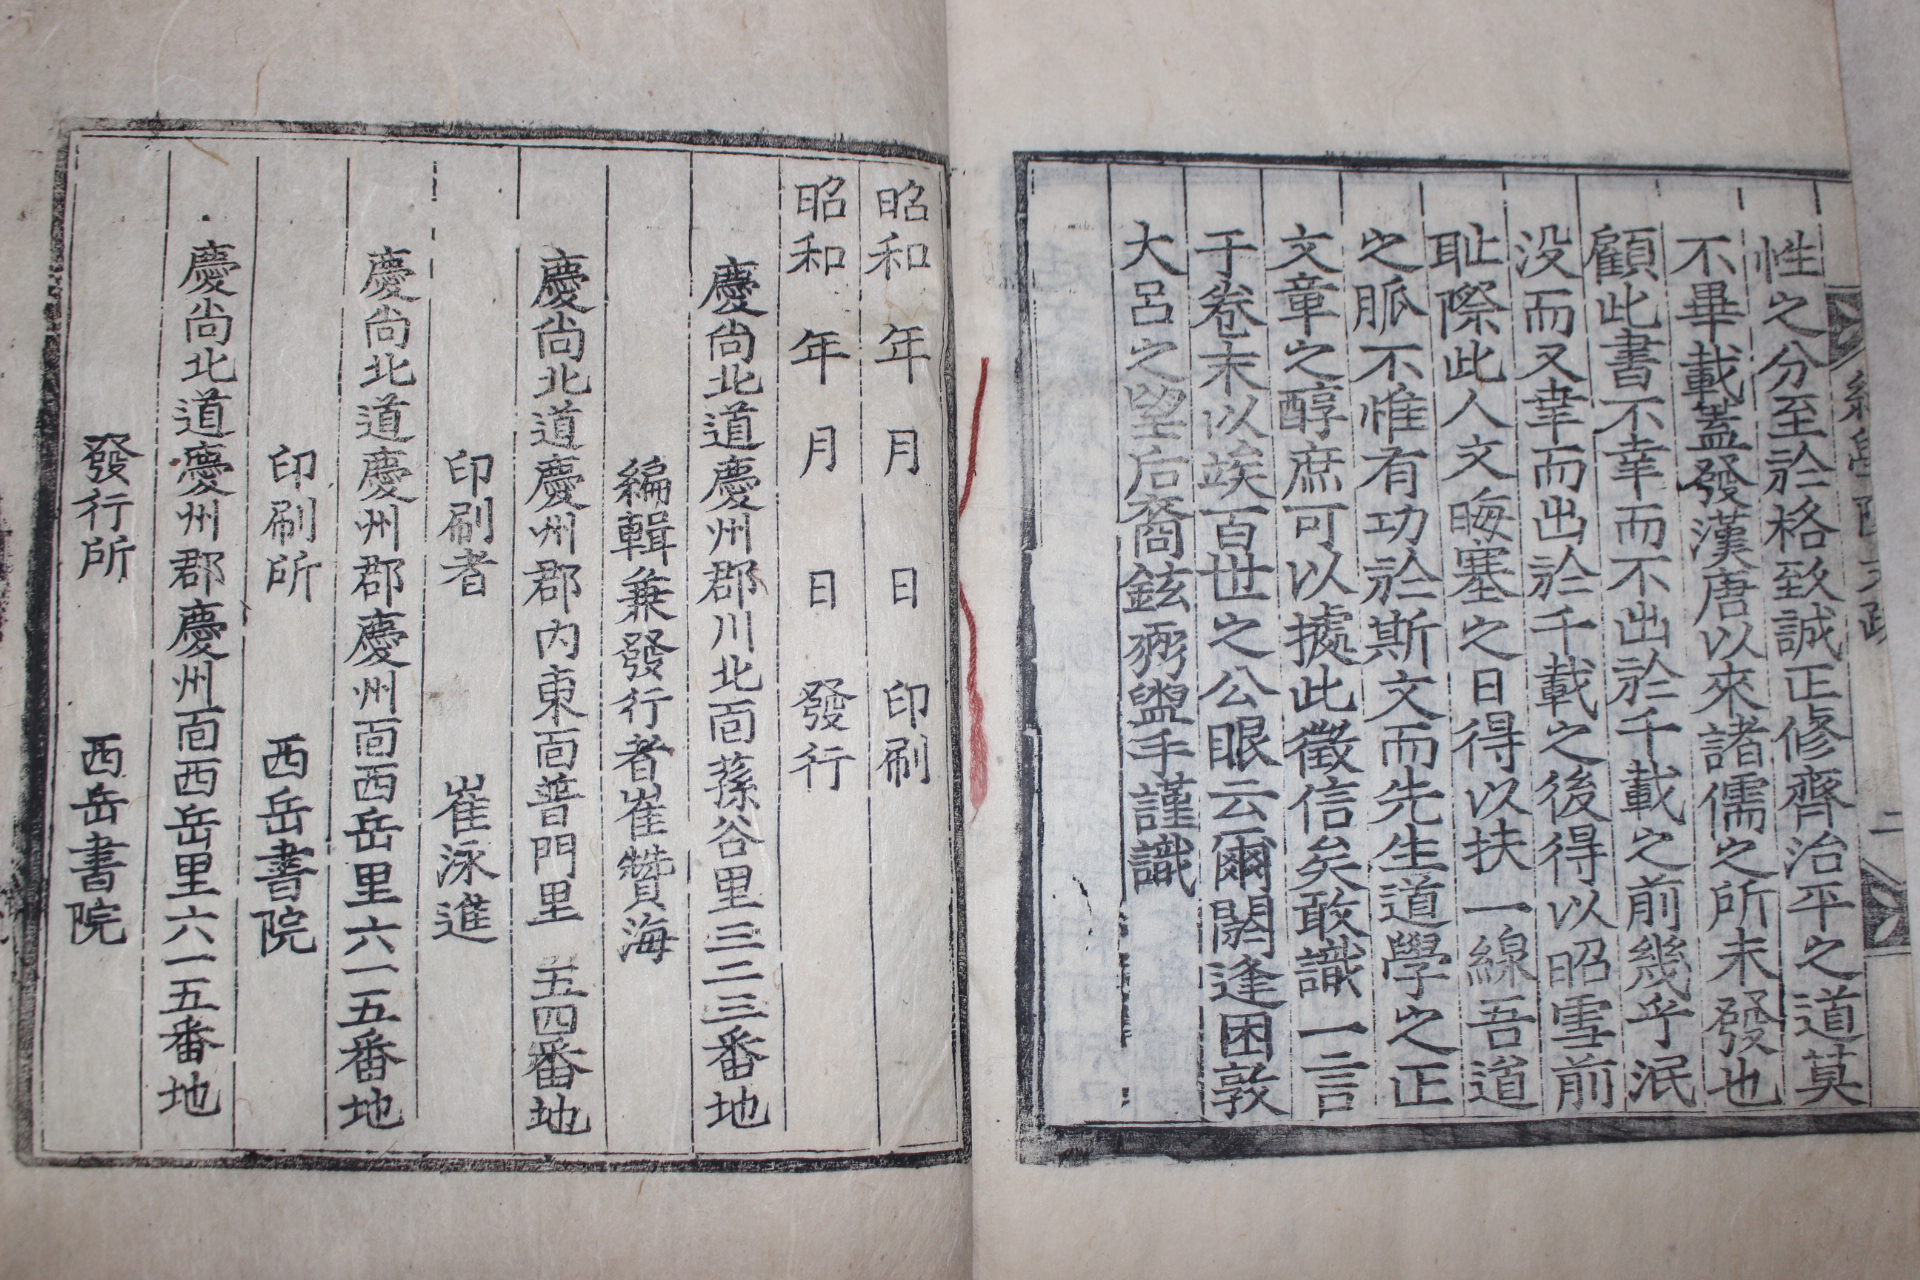 性之分至於格致誠正修齊治平之道莫
不畢載蓋發漢唐以來諸儒之所未發也
顧此書不幸而不出於千載之前幾乎泯
没而又幸而出於千載之後得以昭雪前
耻際此人文晦塞之日得以扶一線吾道
之脈不惟有功於斯文而先生道學之正
文章之醇庶可以據此徵信矣敢識一言
于卷末以竢百世之公眼云爾閼逢困敦
大呂之望后裔鉉弼盥手謹識
昭和 年 月 日 印刷
昭和 年 月 日 發行
慶尙北道慶州郡川北面蓀谷里三二三番地
編輯兼發行者崔贊海
慶尙北道慶州郡內東面普門里 五四番地
印刷者 崔泳進
慶尙北道慶州郡慶州面西岳里六一五番地
印刷所 西岳書院
慶尙北道慶州郡慶州面西岳里六一五番地
發行所 西岳書院